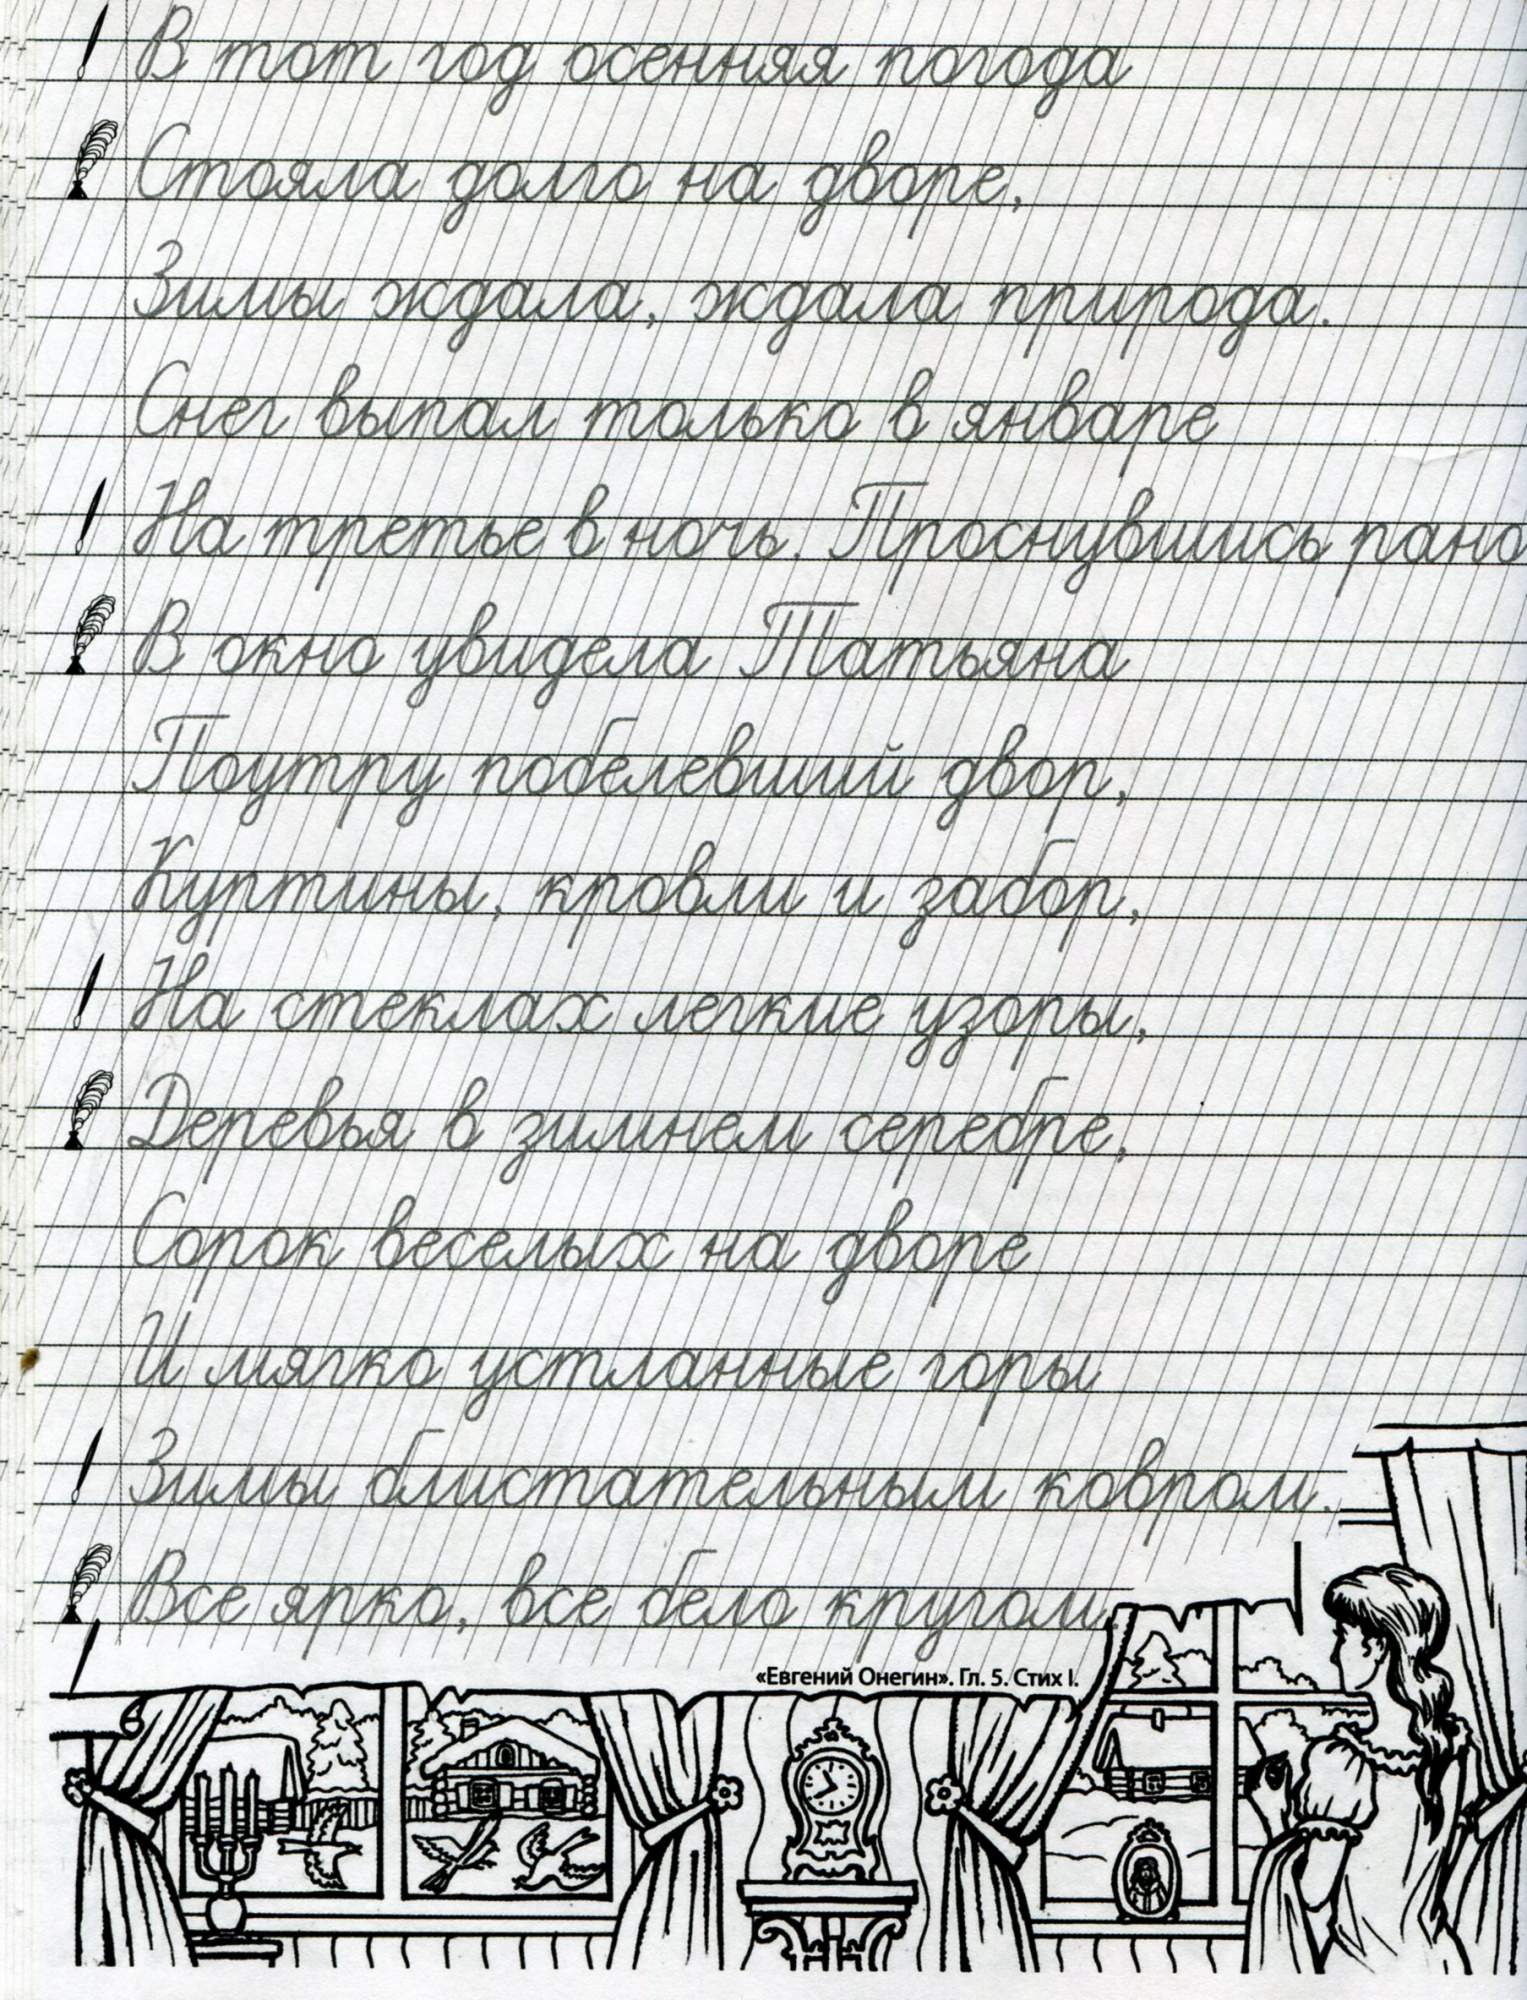 В тот год осенняя погода
Стояла долго на дворе,
Зимы ждала, ждала природа.
Снег выпал только в январе
На третье в ночь. Проснувшись рано
В окно увидела Татьяна
Поутру побелевший двор,
Куртины, кровли и забор,
На стеклах легкие узоры,
Деревья в зимнем серебре,
Сорок веселых на дворе
И мягко устланные горы
Зимы блистательным ковром.
Все ярко, все бело кругом.
«Евгений Онегин». Гл. 5. Стих I.
6